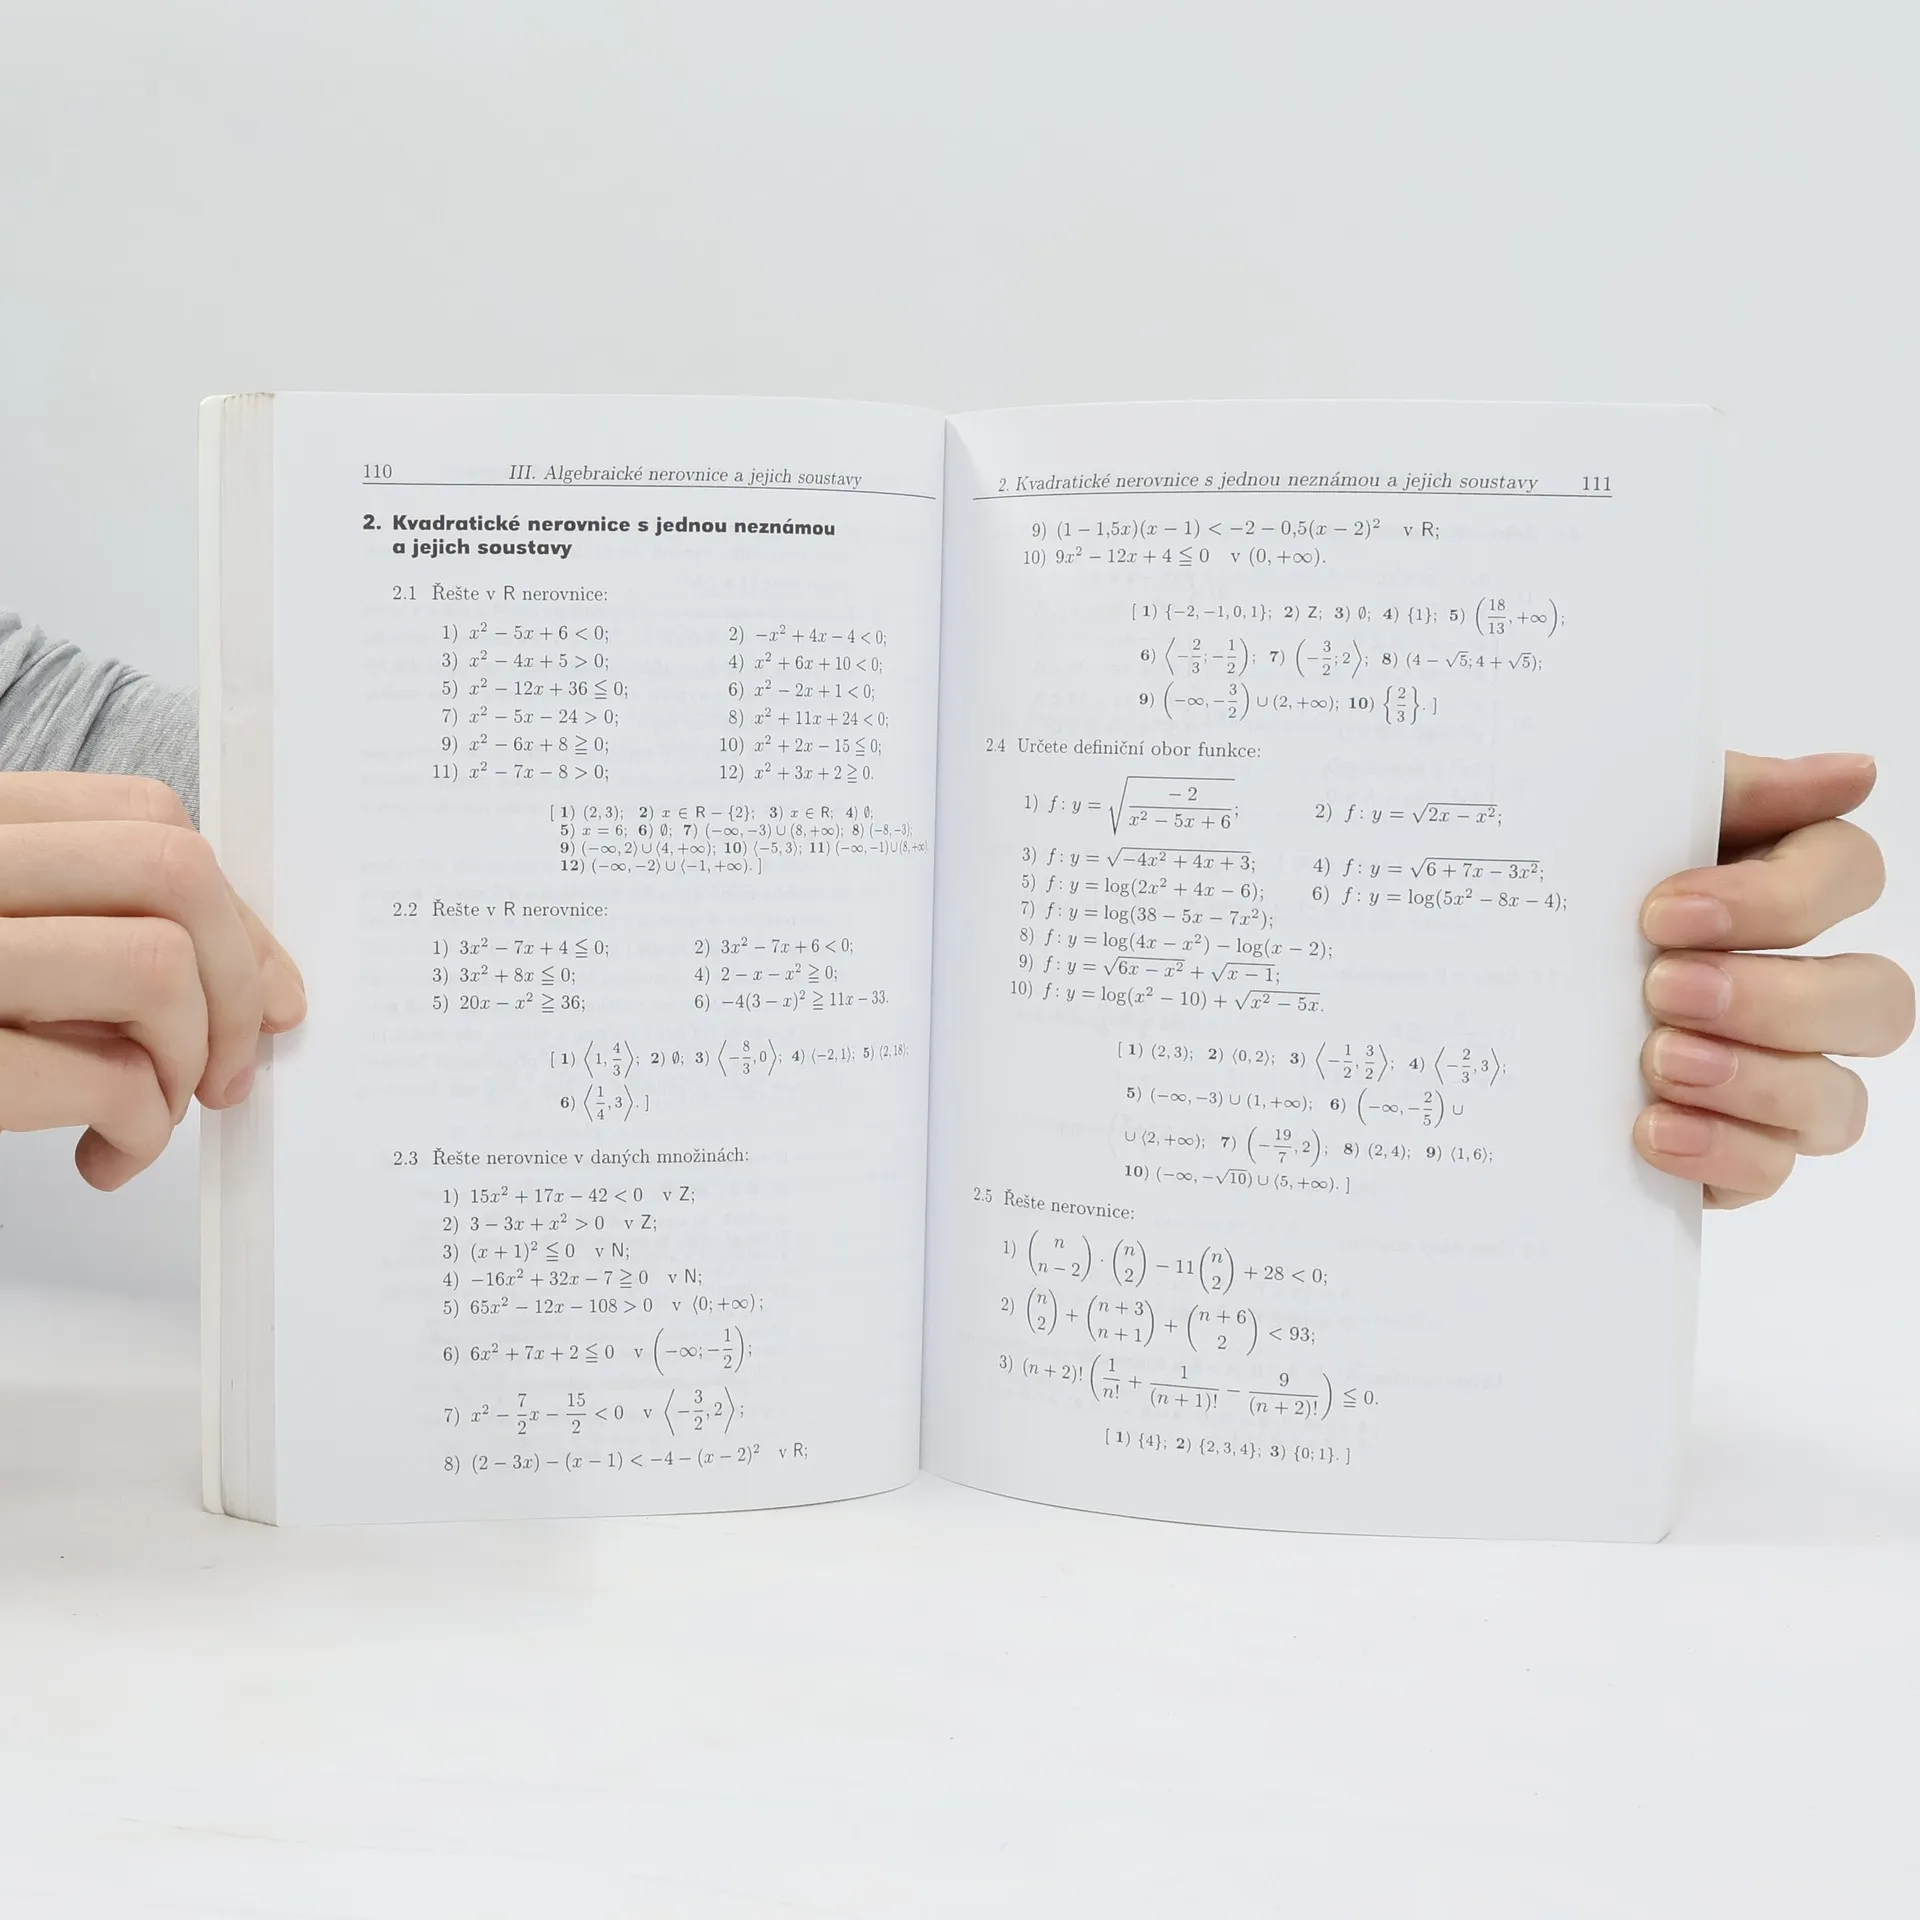 110 III. Algebraické nerovnice a jejich soustavy
2. Kvadratické nerovnice s jednou neznámou
a jejich soustavy
2.1 Řešte v R nerovnice:
1) x² − 5x + 6 < 0; 2) −x² + 4x − 4 < 0;
3) x² − 4x + 5 > 0; 4) x² + 6x + 10 < 0;
5) x² − 12x + 36 ≦ 0; 6) x² − 2x + 1 < 0;
7) x² − 5x − 24 > 0; 8) x² + 11x + 24 < 0;
9) x² − 6x + 8 ≧ 0; 10) x² + 2x − 15 ≦ 0;
11) x² − 7x − 8 > 0; 12) x² + 3x + 2 ≧ 0.
[ 1) (2,3); 2) x ∈ R − {2}; 3) x ∈ R; 4) ∅;
5) x = 6; 6) ∅; 7) (−∞, −3) ∪ (8, +∞); 8) (−8, −3);
9) (−∞, 2⟩ ∪ ⟨4, +∞); 10) ⟨−5, 3⟩; 11) (−∞, −1) ∪ (8, +∞)
12) (−∞, −2⟩ ∪ ⟨−1, +∞). ]
2.2 Řešte v R nerovnice:
1) 3x² − 7x + 4 ≦ 0; 2) 3x² − 7x + 6 < 0;
3) 3x² + 8x ≦ 0; 4) 2 − x − x² ≧ 0;
5) 20x − x² ≧ 36; 6) −4(3 − x)² ≧ 11x − 33.
[ 1) ⟨1, 4/3⟩; 2) ∅; 3) ⟨−8/3, 0⟩; 4) ⟨−2, 1⟩; 5) ⟨2, 18⟩;
6) ⟨1/4, 3⟩. ]
2.3 Řešte nerovnice v daných množinách:
1) 15x² + 17x − 42 < 0 v Z;
2) 3 − 3x + x² > 0 v Z;
3) (x + 1)² ≦ 0 v N;
4) −16x² + 32x − 7 ≧ 0 v N;
5) 65x² − 12x − 108 > 0 v ⟨0; +∞);
6) 6x² + 7x + 2 ≦ 0 v (−∞; −1/2);
7) x² − 7/2 x − 15/2 < 0 v ⟨−3/2, 2⟩;
8) (2 − 3x) − (x − 1) < −4 − (x − 2)² v R;
2. Kvadratické nerovnice s jednou neznámou a jejich soustavy 111
9) (1 − 1,5x)(x − 1) < −2 − 0,5(x − 2)² v R;
10) 9x² − 12x + 4 ≦ 0 v (0, +∞).
[ 1) {−2, −1, 0, 1}; 2) Z; 3) ∅; 4) {1}; 5) (18/13, +∞);
6) ⟨−2/3; −1/2); 7) (−3/2; 2⟩; 8) (4 − √5; 4 + √5);
9) (−∞, −3/2) ∪ (2, +∞); 10) {2/3}. ]
2.4 Určete definiční obor funkce:
1) f: y = √(−2/(x² − 5x + 6)); 2) f: y = √(2x − x²);
3) f: y = √(−4x² + 4x + 3); 4) f: y = √(6 + 7x − 3x²);
5) f: y = log(2x² + 4x − 6); 6) f: y = log(5x² − 8x − 4);
7) f: y = log(38 − 5x − 7x²);
8) f: y = log(4x − x²) − log(x − 2);
9) f: y = √(6x − x²) + √(x − 1);
10) f: y = log(x² − 10) + √(x² − 5x).
[ 1) (2, 3); 2) ⟨0, 2⟩; 3) ⟨−1/2, 3/2⟩; 4) ⟨−2/3, 3⟩;
5) (−∞, −3) ∪ (1, +∞); 6) (−∞, −2/5) ∪
∪ (2, +∞); 7) (−19/7, 2); 8) (2, 4); 9) ⟨1, 6⟩;
10) (−∞, −√10) ∪ ⟨5, +∞). ]
2.5 Řešte nerovnice:
1) (n nad n − 2) · (n nad 2) − 11 (n nad 2) + 28 < 0;
2) (n nad 2) + (n + 3 nad n + 1) + (n + 6 nad 2) < 93;
3) (n + 2)! (1/n! + 1/(n + 1)! − 9/(n + 2)!) ≦ 0.
[ 1) {4}; 2) {2, 3, 4}; 3) {0; 1}. ]